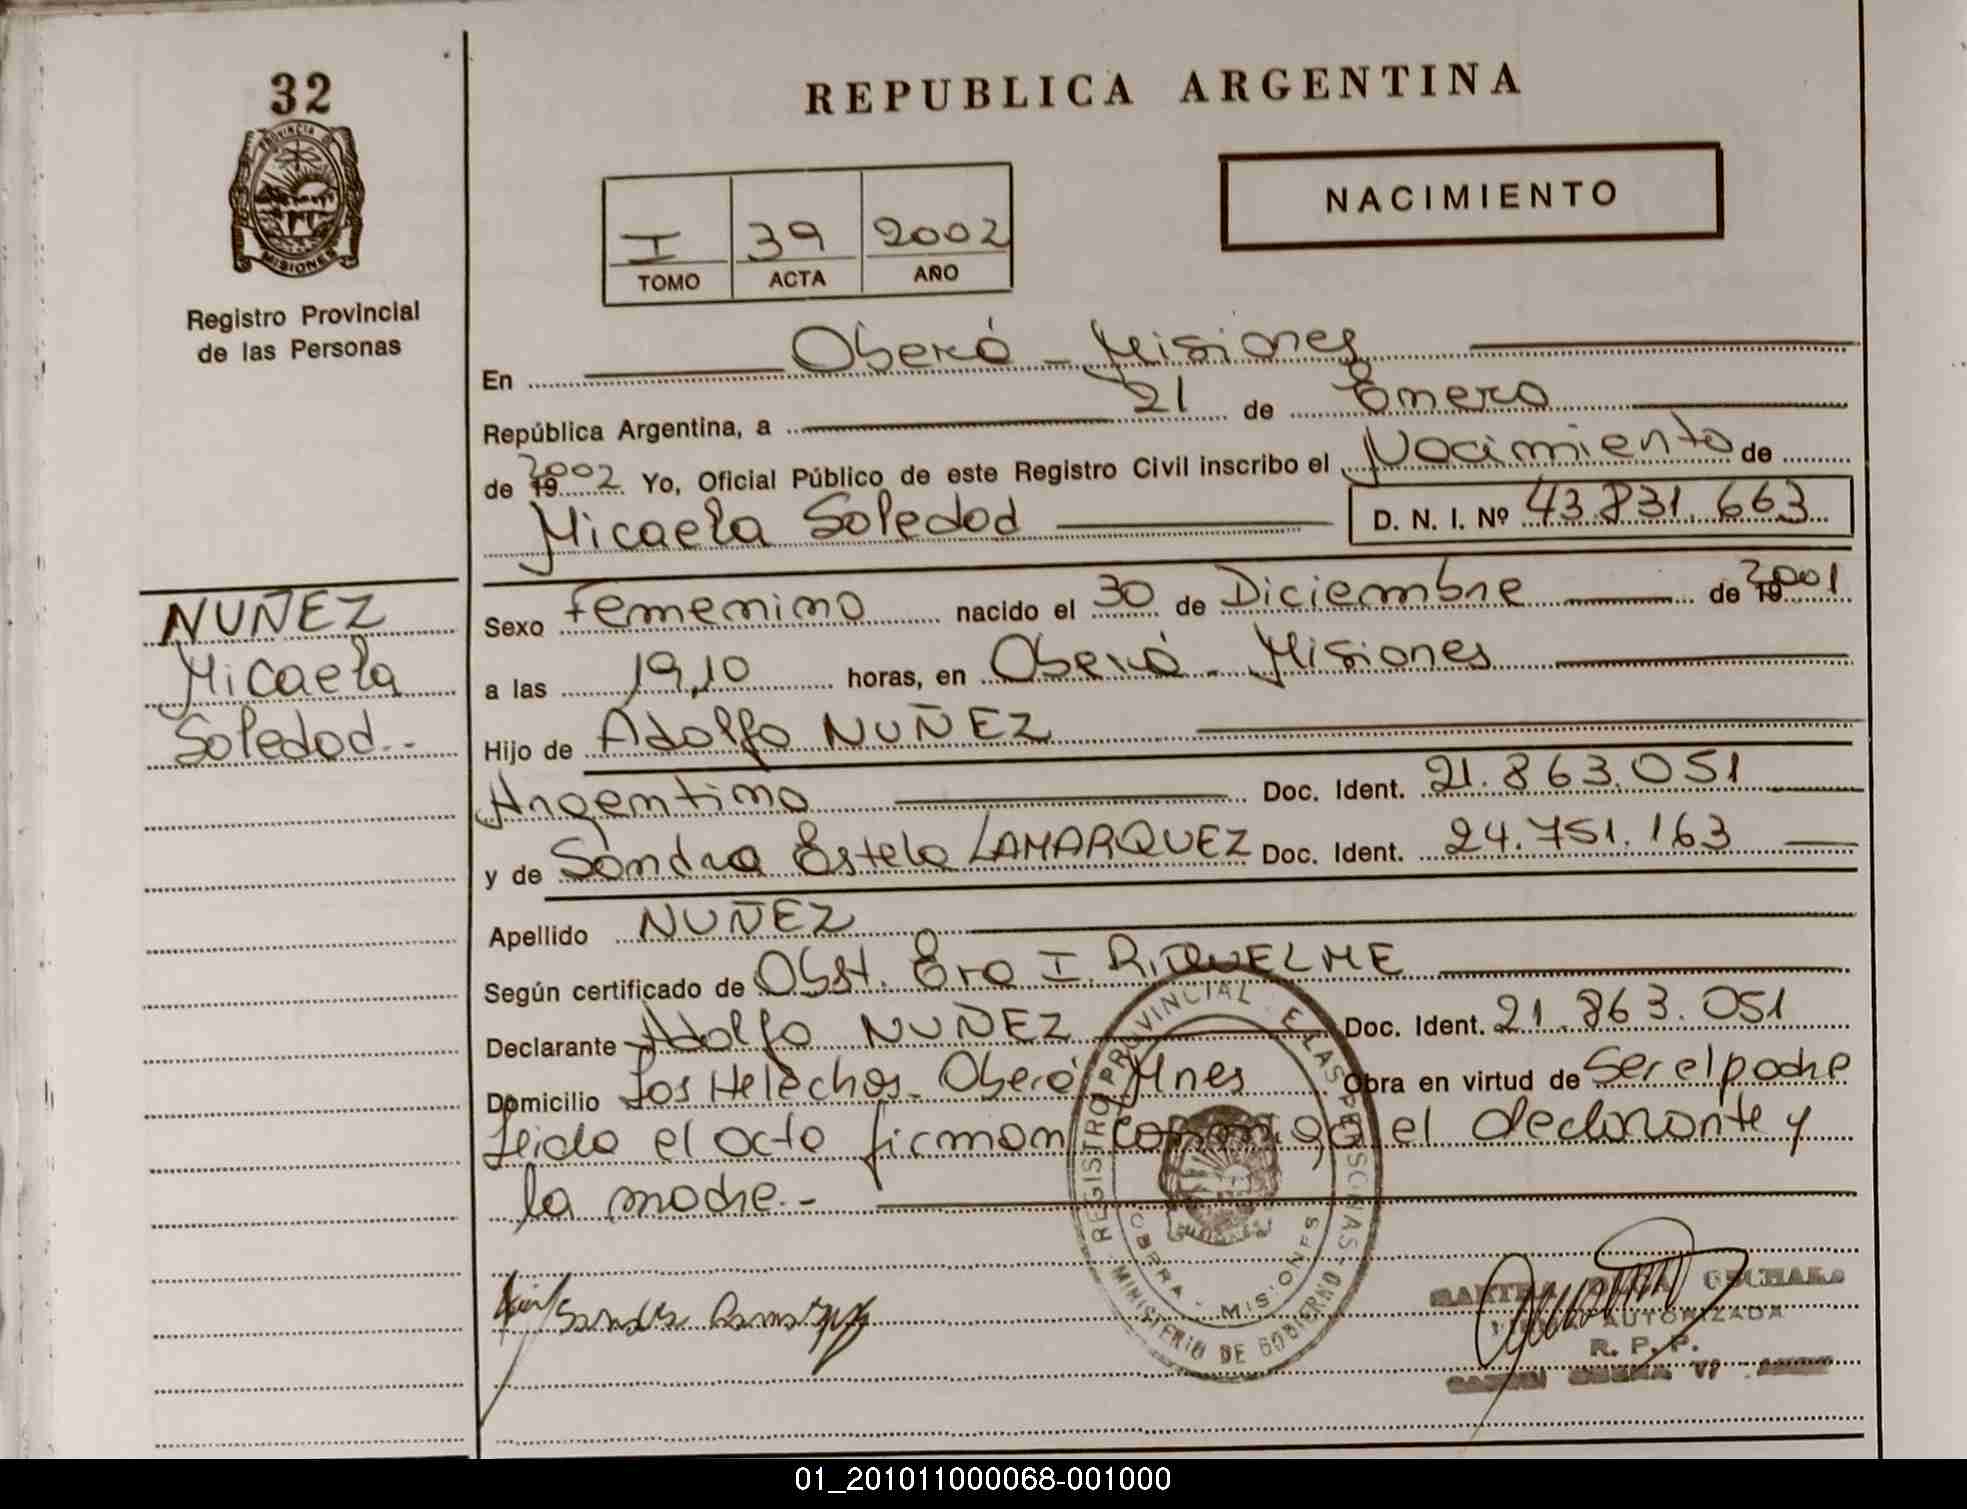 32
PROVINCIA DE
MISIONES
Registro Provincial
de las Personas
NUÑEZ
Micaela
Soledad.-
REPUBLICA ARGENTINA
NACIMIENTO
I 39 2002
TOMO ACTA AÑO
En Oberá - Misiones
República Argentina, a 21 de Enero
de 19 2002 Yo, Oficial Público de este Registro Civil inscribo el Nacimiento de
Micaela Soledad D. N. I. Nº 43.831.663
Sexo femenino nacido el 30 de Diciembre de 19 2001
a las 19,10 horas, en Oberá - Misiones
Hijo de Adolfo NUÑEZ
Argentino Doc. Ident. 21.863.051
y de Sandra Estela LAMARQUEZ Doc. Ident. 24.751.163
Apellido NUÑEZ
Según certificado de Obst. I. RIQUELME
Declarante Adolfo NUÑEZ Doc. Ident. 21.863.051
Domicilio Los Helechos - Oberá Mnes Obra en virtud de Ser el padre
Leida el acta firman conmigo el declarante y
la madre.-
REGISTRO PROVINCIAL DE LAS PERSONAS
OBERA - MISIONES
MINISTERIO DE GOBIERNO
Sandra
AUTORIZADA
R. P. P.
01_201011000068-001000